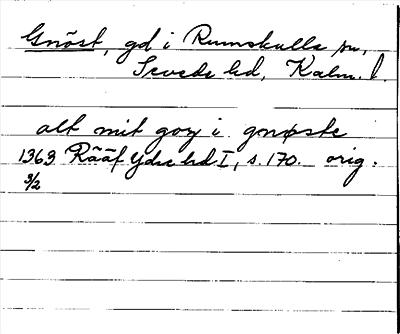 Gnöst, gd i Rumskulla sn,
Sevede hd, Kalm. l.
alt mit goz i gnøste
1363 Rääf Ydre hd I, s. 170. orig.
3/2